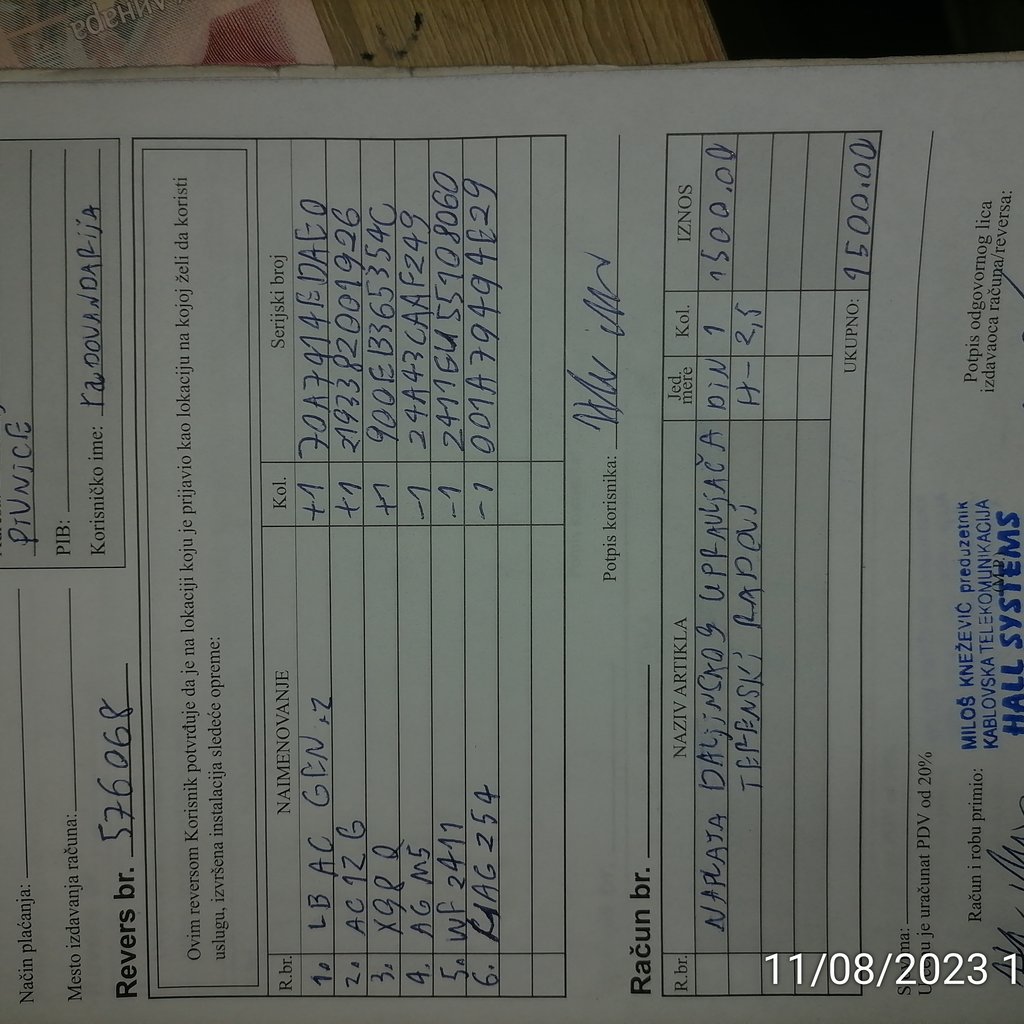 Način plaćanja:
Mesto izdavanja računa:
PIVNICE,
PIB:
Korisničko ime: radovandarija
Revers br. 576068
Ovim reversom Korisnik potvrđuje da je na lokaciji koju je prijavio kao lokaciju na kojoj želi da koristi
uslugu, izvršena instalacija sledeće opreme:
R.br. NAIMENOVANJE Kol. Serijski broj
1. LB AC GEN.2 +1 70A7414EDAE0
2. AC12 G +1 2193382001926
3. X98 Q +1 900EB365354C
4. AG M5 -1 24A43CAAF249
5. WF2411 -1 2411GU55108060
6. MAG254 -1 001A79494E29
Potpis korisnika:
Račun br.
R.br. NAZIV ARTIKLA Jed. mere Kol. IZNOS
NAPLATA DALJINSKOG UPRAVLJAČA DIN 1 1500.00
TERENSKI RADOVI H- 2,5
UKUPNO: 1500.00
U cenu je uračunat PDV od 20%
Račun i robu primio:
MILOŠ KNEŽEVIĆ preduzetnik
KABLOVSKA TELEKOMUNIKACIJA
HALL SYSTEMS
Potpis odgovornog lica
izdavaoca računa/reversa:
11/08/2023 1